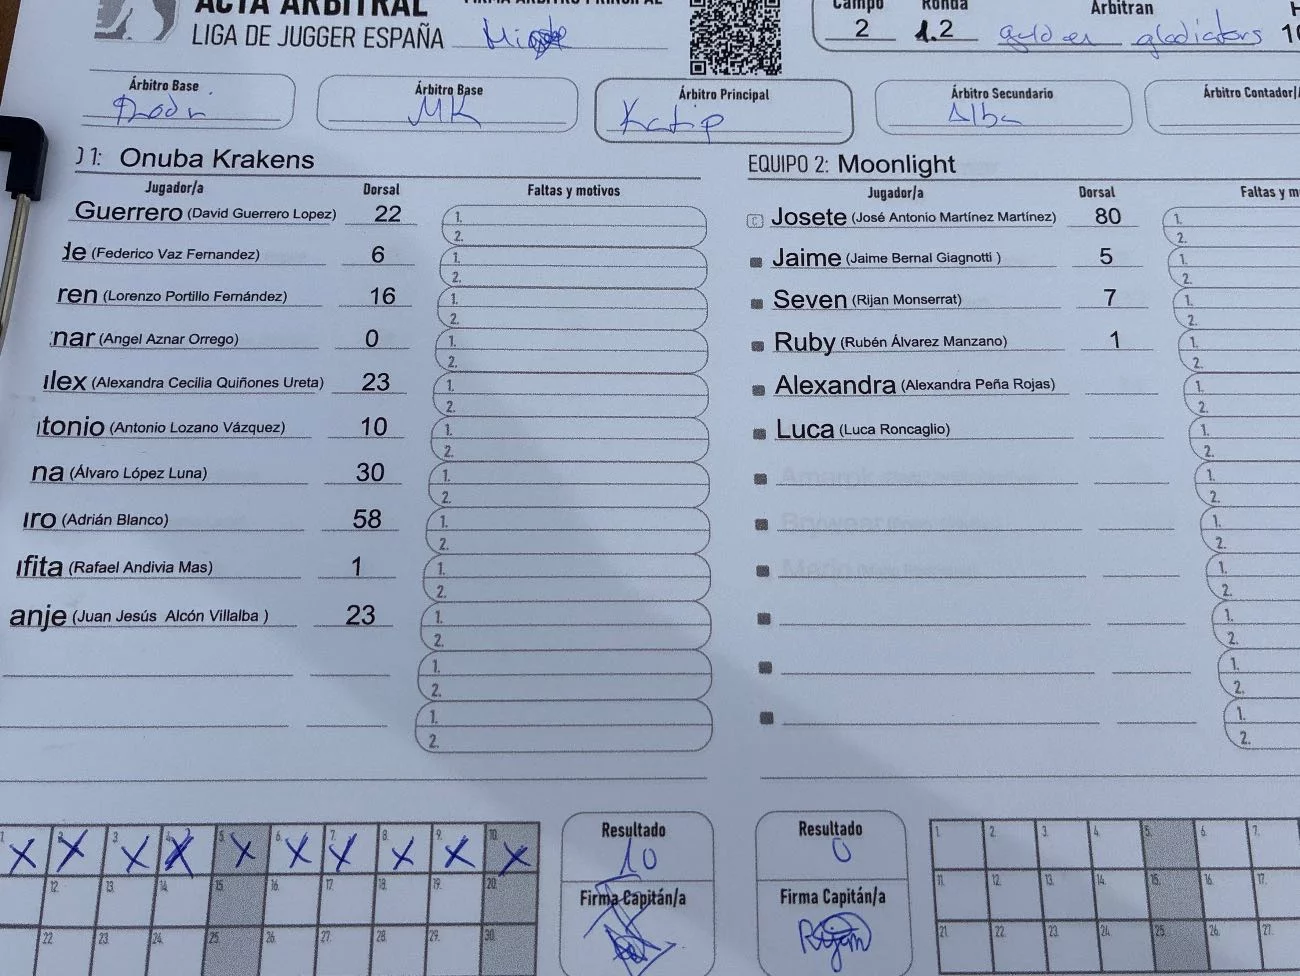 ACTA ARBITRAL
LIGA DE JUGGER ESPAÑA
FIRMA ÁRBITRO PRINCIPAL
Campo Ronda Arbitran
2 1.2 golden gladiators
Árbitro Base Árbitro Base Árbitro Principal Árbitro Secundario Árbitro Contador/
MK Katip Alba
1: Onuba Krakens
Jugador/a Dorsal Faltas y motivos
Guerrero (David Guerrero Lopez) 22 1. 2.
de (Federico Vaz Fernandez) 6 1. 2.
ren (Lorenzo Portillo Fernández) 16 1. 2.
nar (Angel Aznar Orrego) 0 1. 2.
lex (Alexandra Cecilia Quiñones Ureta) 23 1. 2.
tonio (Antonio Lozano Vázquez) 10 1. 2.
na (Álvaro López Luna) 30 1. 2.
iro (Adrián Blanco) 58 1. 2.
fita (Rafael Andivia Mas) 1 1. 2.
anje (Juan Jesús Alcón Villalba ) 23 1. 2.
1. 2.
1. 2.
EQUIPO 2: Moonlight
Jugador/a Dorsal Faltas y m
C Josete (José Antonio Martínez Martínez) 80 1. 2.
Jaime (Jaime Bernal Giagnotti ) 5 1. 2.
Seven (Rijan Monserrat) 7 1. 2.
Ruby (Rubén Álvarez Manzano) 1 1. 2.
Alexandra (Alexandra Peña Rojas) 1. 2.
Luca (Luca Roncaglio) 1. 2.
1. 2.
1. 2.
1. 2.
1. 2.
1. 2.
1. 2.
1. X 2. X 3. X 4. X 5. X 6. X 7. X 8. X 9. X 10. X
12. 13. 14. 15. 16. 17. 18. 19. 20.
22. 23. 24. 25. 26. 27. 28. 29. 30.
Resultado
10
Firma Capitán/a
Resultado
0
Firma Capitán/a
Rijan
1. 2. 3. 4. 5. 6. 7.
11. 12. 13. 14. 15. 16. 17.
21. 22. 23. 24. 25. 26. 27.